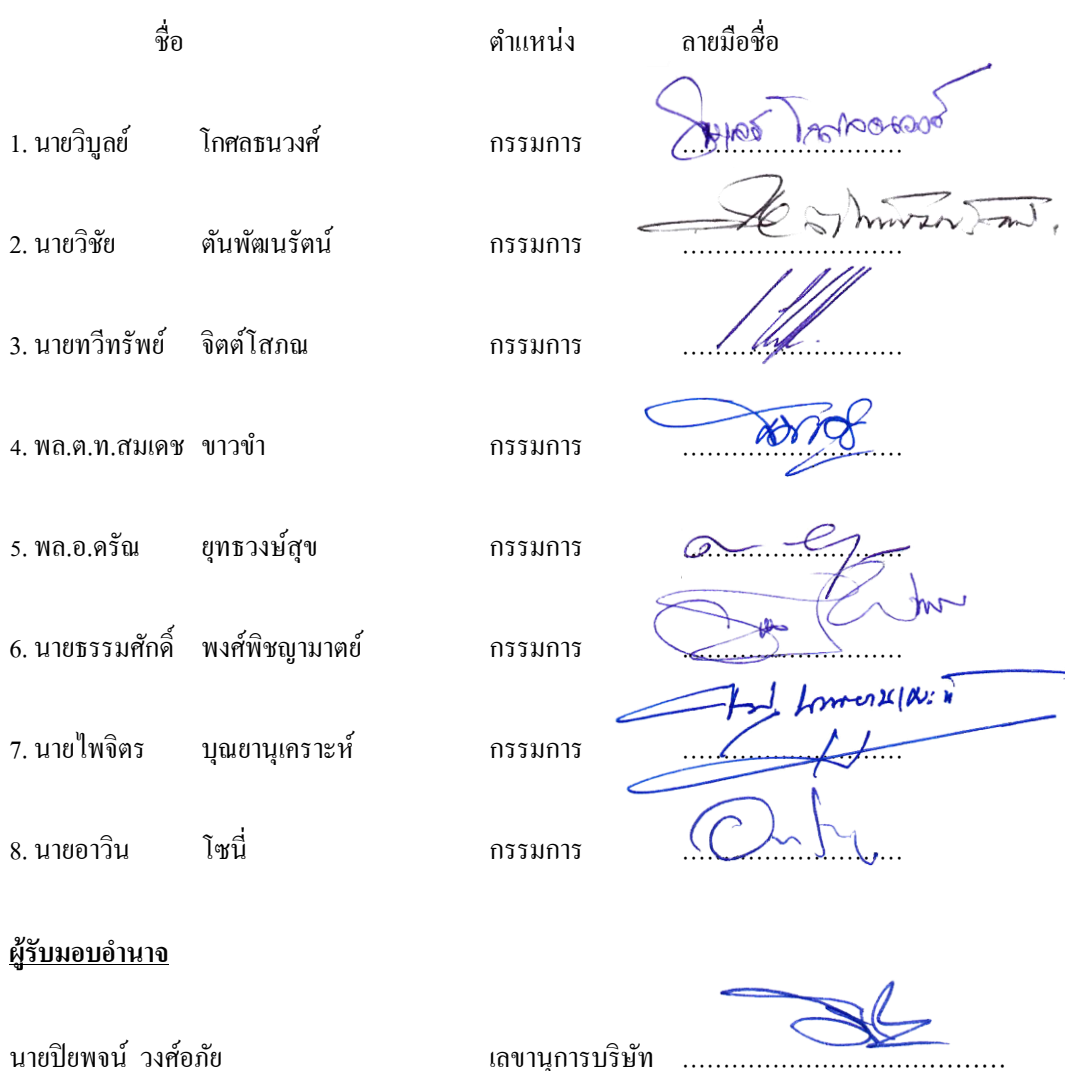 ชื่อ ตำแหน่ง ลายมือชื่อ
1. นายวิบูลย์ โกศลธนวงศ์ กรรมการ ..............................
2. นายวิชัย ตันพัฒนรัตน์ กรรมการ ..............................
3. นายทวีทรัพย์ จิตต์โสภณ กรรมการ ..............................
4. พล.ต.ท.สมเดช ขาวขำ กรรมการ ..............................
5. พล.อ.ดรัณ ยุทธวงษ์สุข กรรมการ ..............................
6. นายธรรมศักดิ์ พงศ์พิชญามาตย์ กรรมการ ..............................
7. นายไพจิตร บุณยานุเคราะห์ กรรมการ ..............................
8. นายอาวิน โซนี่ กรรมการ ..............................
ผู้รับมอบอำนาจ
นายปิยพจน์ วงศ์อภัย เลขานุการบริษัท ............................................